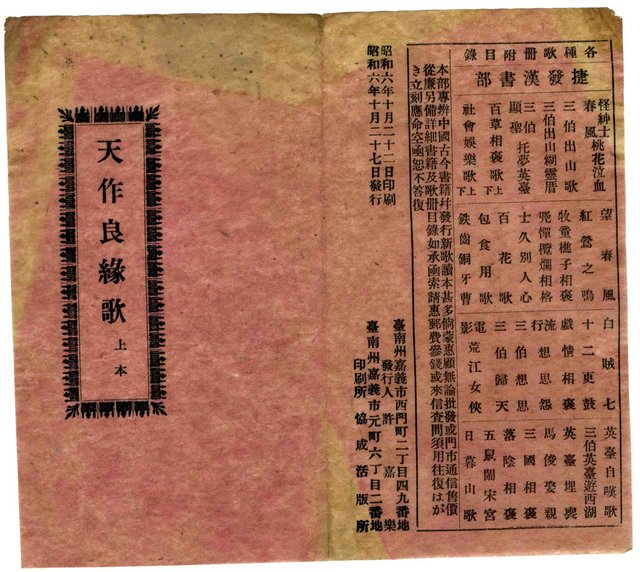 各種歌冊附目錄
捷發漢書部
怪紳士
春風桃花泣血
三伯出山歌
三伯出山糊靈厝
三伯顯聖托夢英臺
百草相褒歌上下
社會娛樂歌上下
望春風
紅鶯之鳴
牧童樵子相褒
憚攬爛相格
士久別人心
百花歌
包食用歌
鐵齒銅牙曹
白賊七
十二更鼓
戲情相褒
流想思怨行
三伯想思
三伯歸天
電影荒江女俠
英臺自嘆歌
三伯英臺遊西湖
英臺埋喪
馬俊娶親
三國相褒
落陰相褒
五鼠鬧宋宮
日暮山歌
本部專辨中國古今書籍幷發行新歌讀本甚多倘蒙惠顧無論批發或門市通信售價
從廉另備詳細書籍及歌冊目錄如承函索請惠郵費參錢或來信查問須用往復はが
き立刻應命空函恕不答復
昭和六年十月二十二日印刷
昭和六年十月二十七日發行
臺南州嘉義市西門町二丁目四九番地
發行人 許嘉樂
臺南州嘉義市元町六丁目二番地
印刷所 協成活版所
天作良緣歌 上本